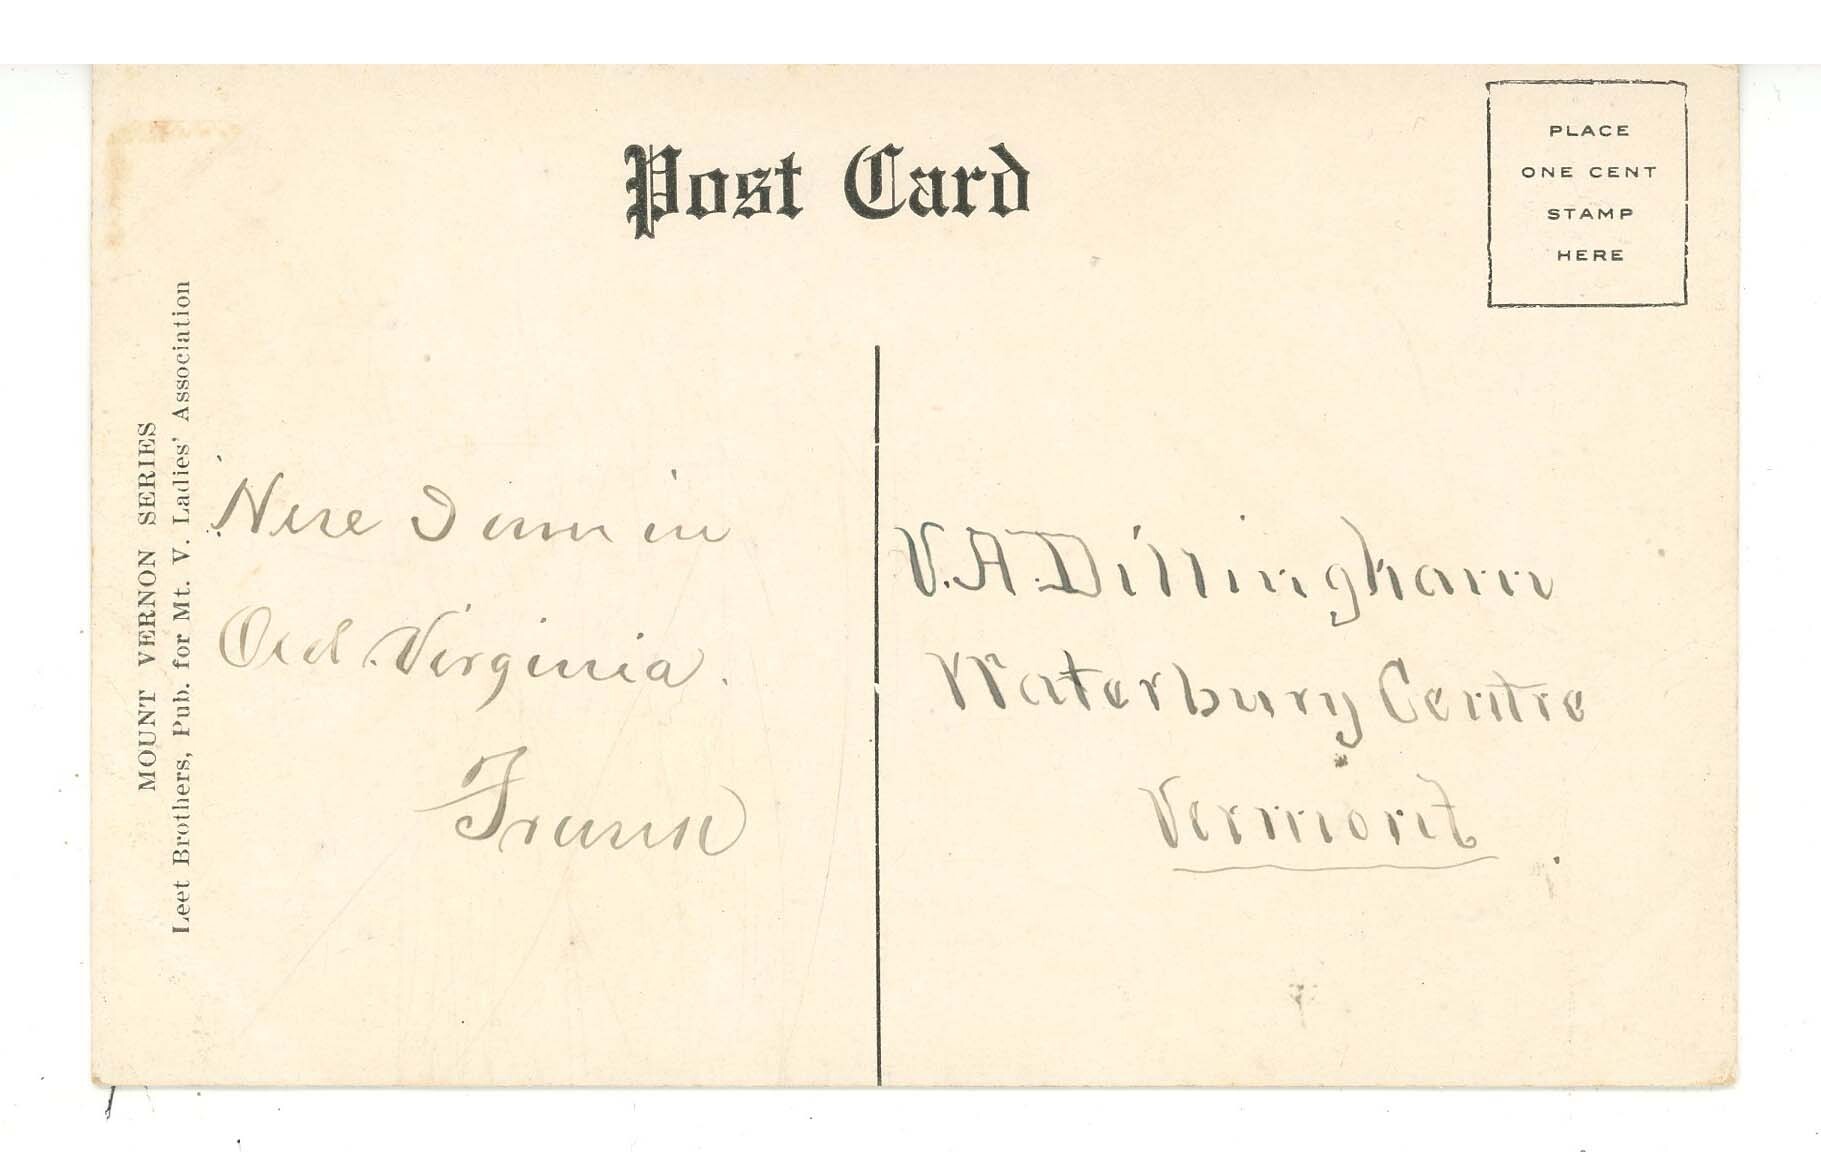 Post Card
PLACE
ONE CENT
STAMP
HERE
MOUNT VERNON SERIES
Leet Brothers, Pub. for Mt. V. Ladies' Association
Here I am in
Old Virginia.
Frank
V. A. Dillingham
Waterbury Centre
Vermont